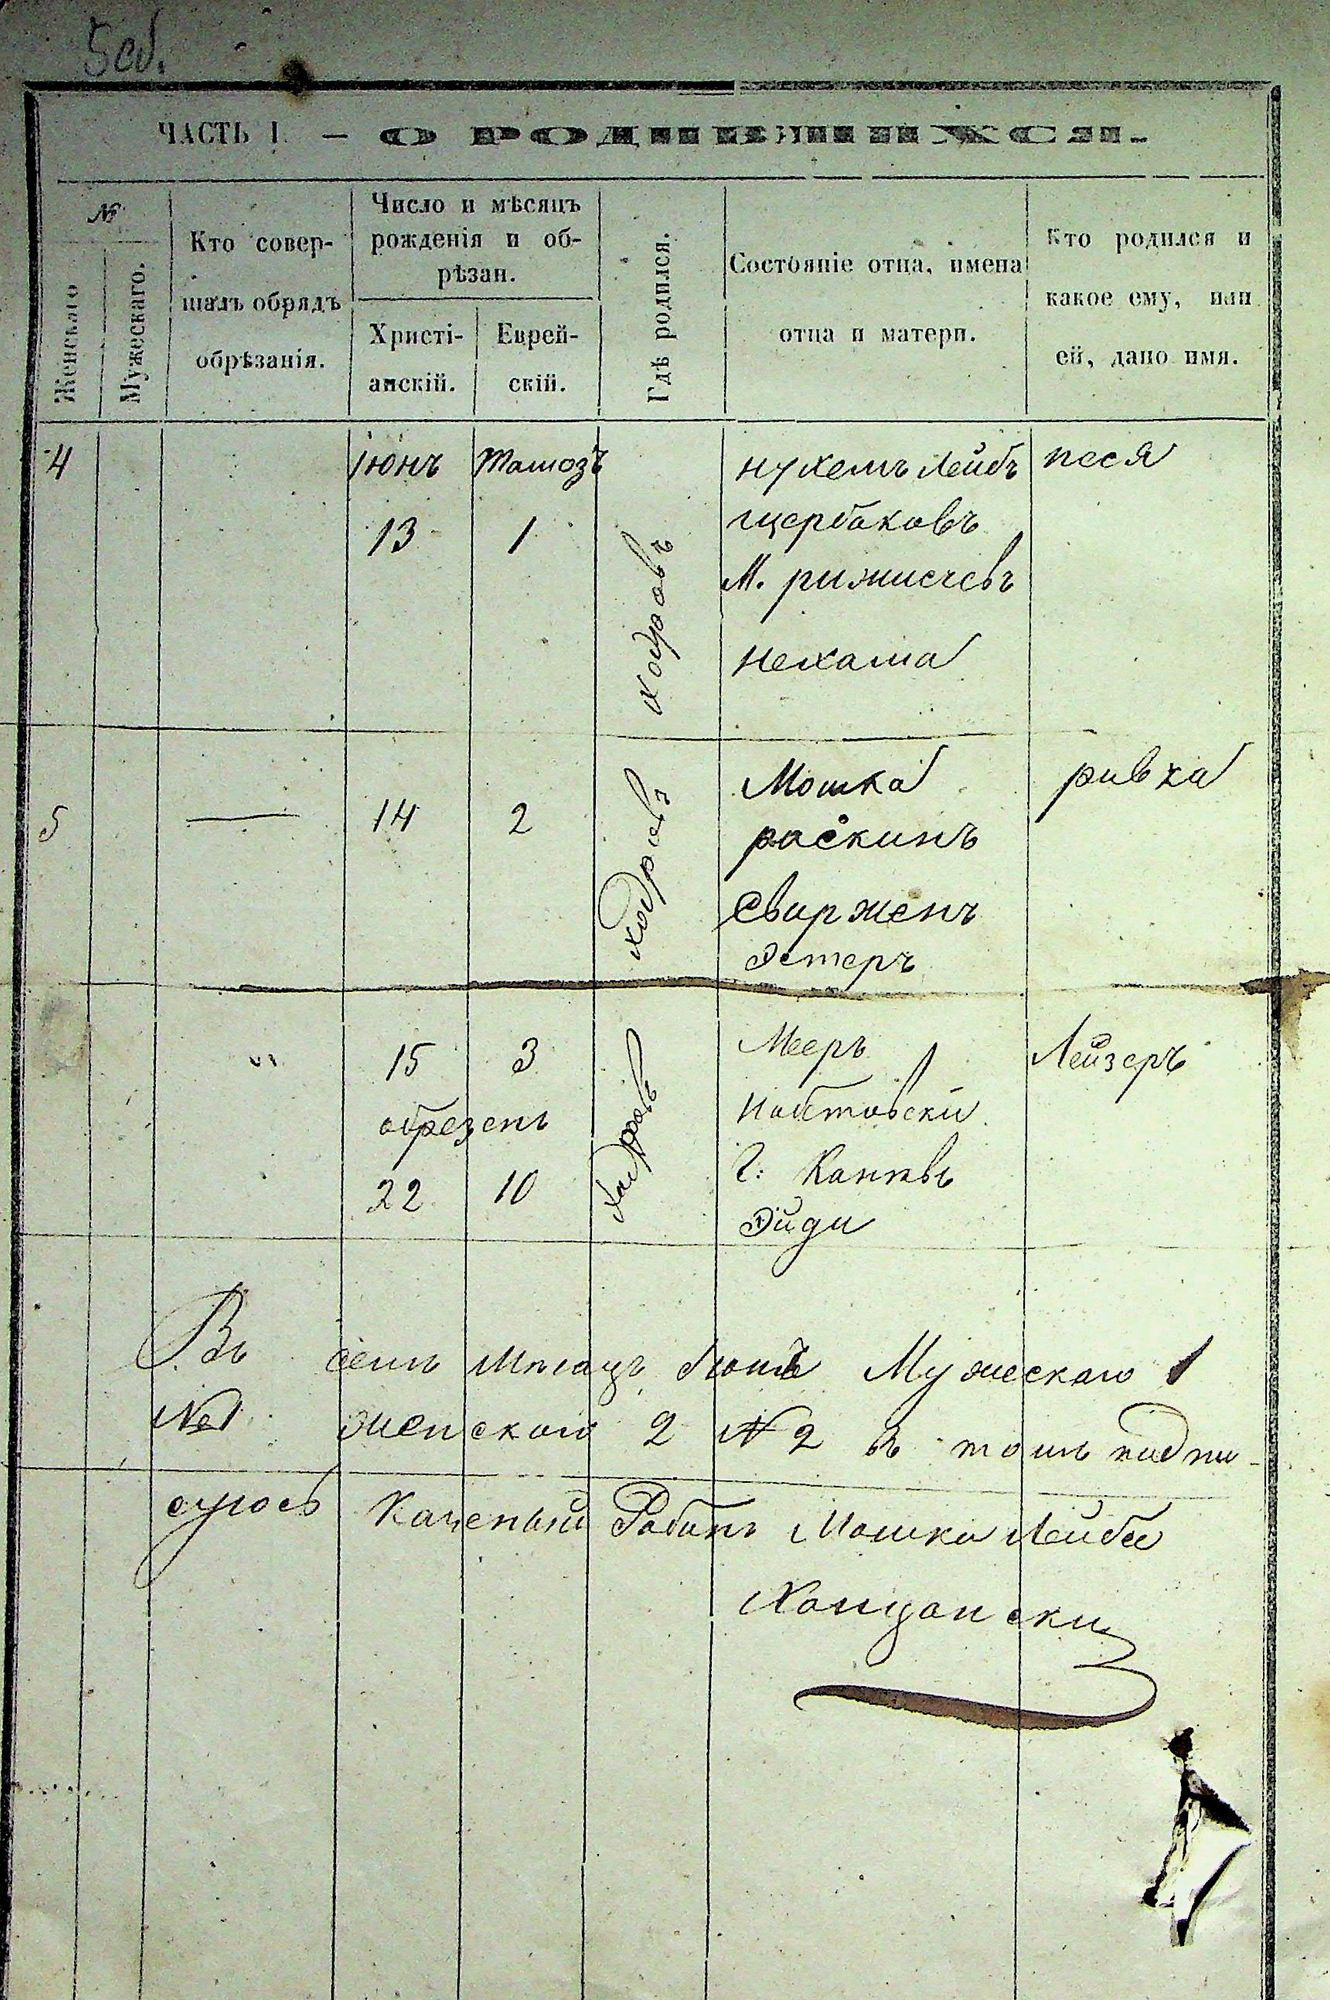 5 об.
ЧАСТЬ I. — О РОДИВШИХСЯ.
№
Женскаго
Мужескаго.
Кто совер-
шалъ обрядъ
обрѣзанія.
Число и мѣсяцъ
рожденія и об-
рѣзан.
Христі-
анскій.
Еврей-
скій.
Гдѣ родился.
Состояніе отца, имена
отца и матери.
Кто родился и
какое ему, или
ей, дано имя.
4
Іюнъ
13
Тамозъ
1
ходровъ
нухемъ Лейбъ
щербаковъ
М.
нехама
песя
5
—
14
2
ходровъ
Мошка
раскинъ
Свирженъ
Эстеръ
ривка
"
15
3
обрезенъ
22
10
ходровъ
Мееръ
г:
Эйди
Лейзеръ
Въ семъ Мѣсяцъ Іюнѣ Мужескаго 1
№1 женскаго 2 № 2 въ томъ подпи-
суюсь Казеный Рабинъ Мошка Лейба